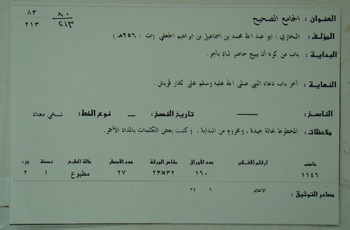 ٨٣ ٨٠
٢١٣ ٢٤٣
العنوان : الجامع الصحيح
المؤلف : البخاري ; ابو عبد الله محمد بن اسماعيل بن ابراهيم الجعفي (ت : ٢٥٦هـ)
البداية : باب من كره أن يبيع حاضر لباد بأجر.
النهاية : آخر باب دعاء النبي صلى الله عليه وسلم على كفار قريش .
الناسخ : تاريخ النسخ : نوع الخط : نسخي معتاد
ملاحظات : المخطوط بحالة جيدة ، ومخروم من البداية . وكتبت بعض الكلمات بالمداد الأحمر.
أرقام الأفلام عدد الأوراق مقاس الورقة عدد الأسطر حالة الطبع نسخة جزء
١١٤٦ ١٦٠ ٣٢×٢٣ ٢٧ مطبوع ١ ٢
مصادر التوثيق : الاعلام ٦ ٣٤